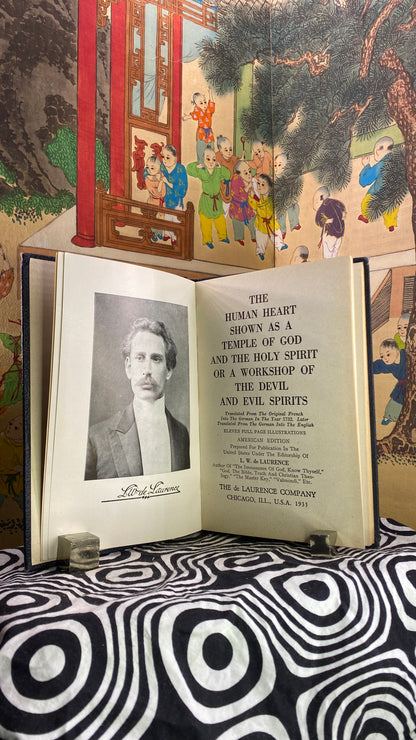 L.W. de Laurence
THE
HUMAN HEART
SHOWN AS A
TEMPLE OF GOD
AND THE HOLY SPIRIT
OR A WORKSHOP OF
THE DEVIL
AND EVIL SPIRITS
Translated From The Original French
Into The German In The Year 1732. Later
Translated From The German Into The English
ELEVEN FULL PAGE ILLUSTRATIONS
AMERICAN EDITION
Prepared For Publication In The
United States Under The Editorship Of
L. W. de LAURENCE
Author Of "The Immanence Of God, Know Thyself,"
"God, The Bible, Truth And Christian Theo-
logy," "The Master Key," "Valmondi," Etc.
THE de LAURENCE COMPANY
CHICAGO, ILL., U.S.A. 1933